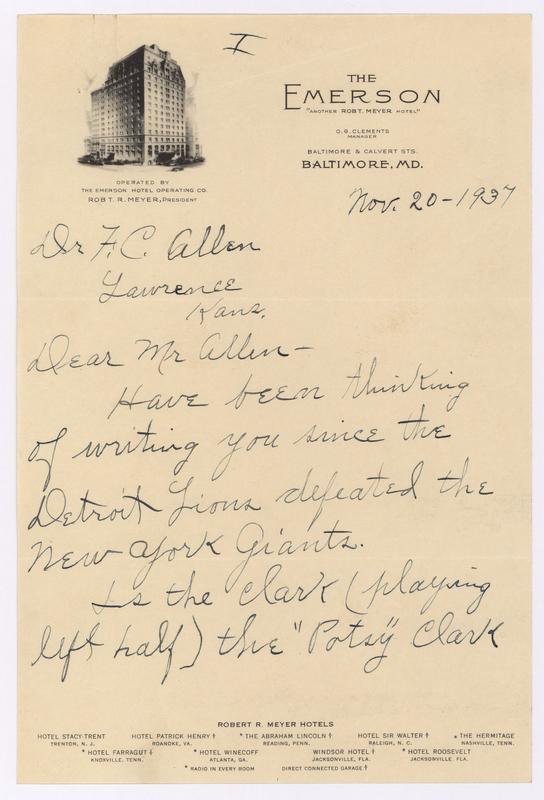 I
THE
EMERSON
"ANOTHER ROBT. MEYER HOTEL"
O.G. CLEMENTS
MANAGER
BALTIMORE & CALVERT STS.
BALTIMORE, MD.
OPERATED BY
THE EMERSON HOTEL OPERATING CO.
ROBT. R. MEYER, PRESIDENT
Nov. 20-1937
Dr F.C. Allen
Lawrence
Kans.
Dear Mr Allen-
Have been thinking
of writing you since the
Detroit Lions defeated the
New York Giants.
Is the Clark (playing
left half) the "Potsy" Clark
ROBERT R. MEYER HOTELS
HOTEL STACY-TRENT HOTEL PATRICK HENRY † * THE ABRAHAM LINCOLN † HOTEL SIR WALTER † * THE HERMITAGE
TRENTON, N. J. ROANOKE, VA. READING, PENN. RALEIGH, N. C. NASHVILLE, TENN.
* HOTEL FARRAGUT † * HOTEL WINECOFF WINDSOR HOTEL † * HOTEL ROOSEVELT
KNOXVILLE, TENN. ATLANTA, GA. JACKSONVILLE, FLA. JACKSONVILLE FLA.
* RADIO IN EVERY ROOM DIRECT CONNECTED GARAGE †